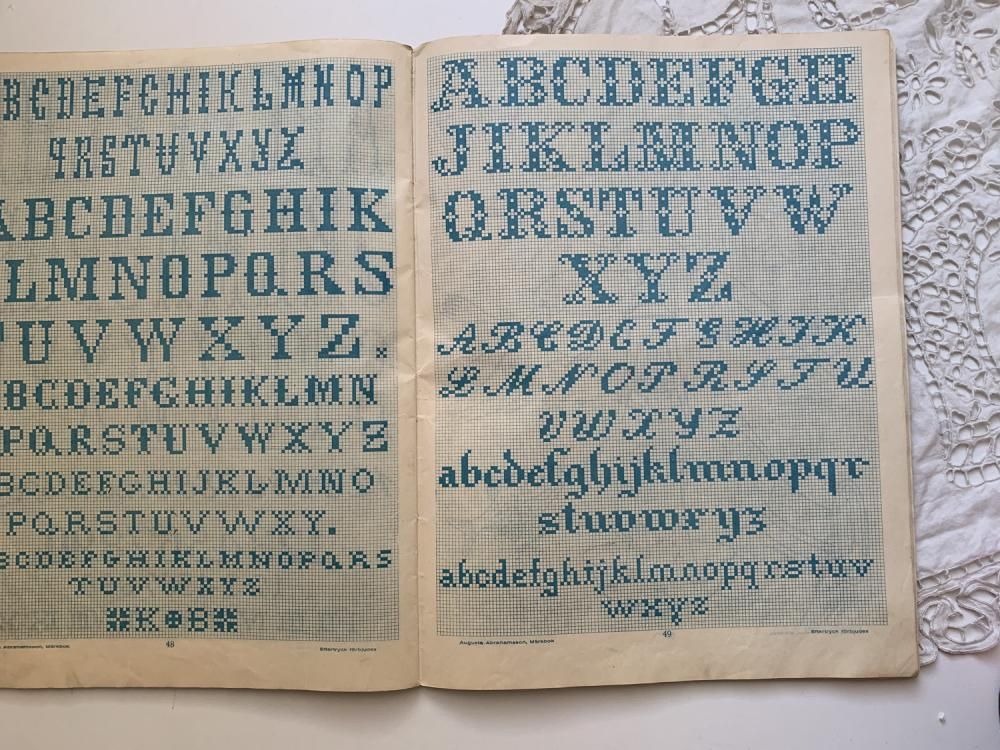 BCDEFGHIKLMNOP
QRSTUVXYZ
ABCDEFGHIK
LMNOPQRS
TUVWXYZ.
BCDEFGHIKLMN
PQRSTUVWXYZ
BCDEFGHIJKLMNO
PQRSTUVWXY.
BCDEFGHIKLMNOPQRS
TUVWXYZ
K B
Abrahamsson, Märkbok
48
Eftertryck förbjudes
ABCDEFGH
JIKLMNOP
QRSTUVW
XYZ
ABCDEFGHIK
LMNOPRSTU
VWXYZ
abcdefghijklmnopqr
stuvwxyz
abcdefghijklmnopqrstuv
wxyz
Augusta Abrahamsson, Märkbok
49
Eftertryck förbjudes